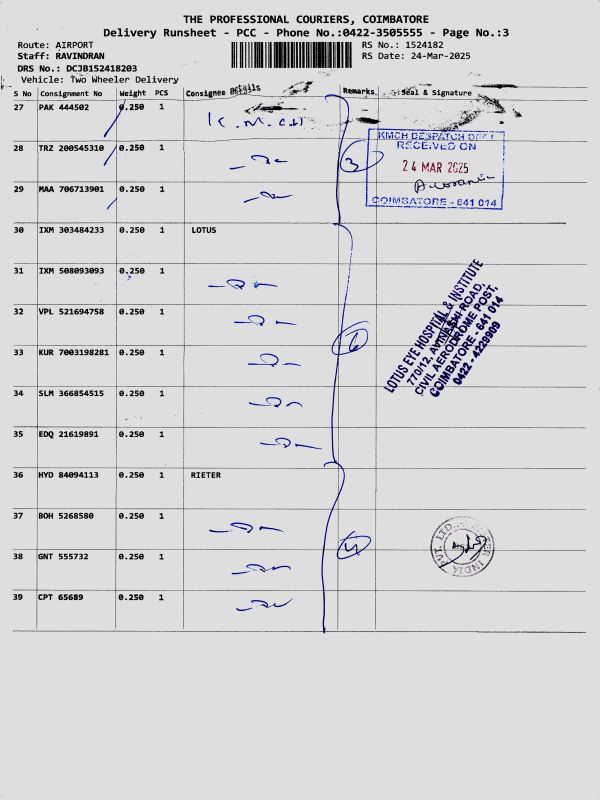 THE PROFESSIONAL COURIERS, COIMBATORE
Delivery Runsheet - PCC - Phone No.:0422-3505555 - Page No.:3
Route: AIRPORT RS No.: 1524182
Staff: RAVINDRAN RS Date: 24-Mar-2025
DRS No.: DCJB152418203
Vehicle: Two Wheeler Delivery
S No Consignment No Weight PCS Consignee Details Remarks Seal & Signature
27 PAK 444502 0.250 1 K.M.CH
28 TRZ 200545310 0.250 1 3
29 MAA 706713901 0.250 1
KMCH DESPATCH DEPT
RECEIVED ON
24 MAR 2025
COIMBATORE - 641 014
30 IXM 303484233 0.250 1 LOTUS
31 IXM 508093093 0.250 1
32 VPL 521694758 0.250 1
33 KUR 7003198281 0.250 1 6
34 SLM 366854515 0.250 1
35 EDQ 21619891 0.250 1
LOTUS EYE HOSPITAL & INSTITUTE
770/12, AVINASHI ROAD,
CIVIL AERODROME POST,
COIMBATORE - 641 014
0422 - 4229909
36 HYD 84094113 0.250 1 RIETER
37 BOH 5268580 0.250 1 4
38 GNT 555732 0.250 1
39 CPT 65689 0.250 1
RIETER INDIA PVT. LTD.